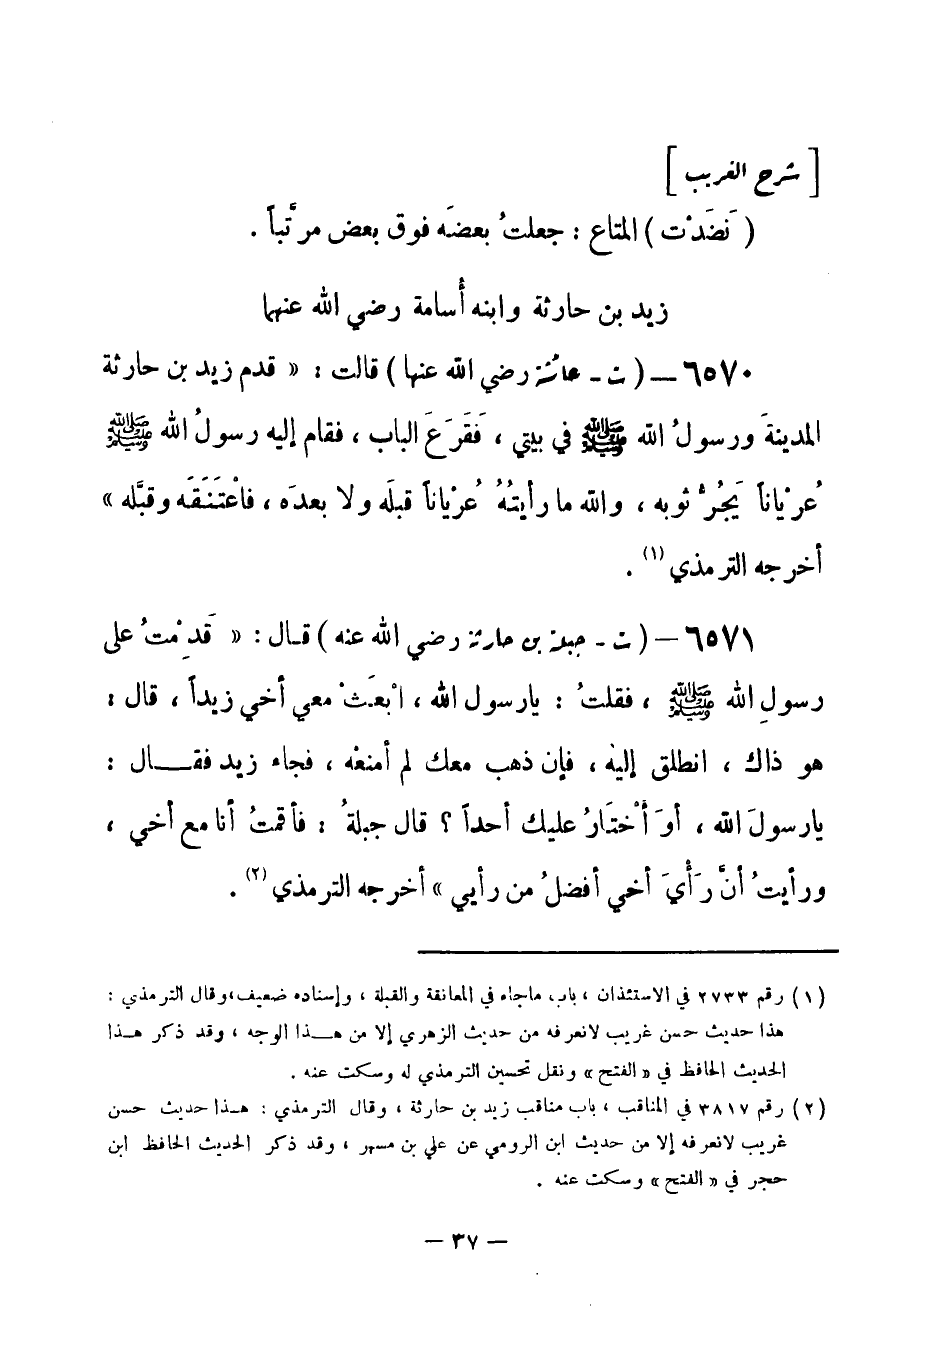 [ شرح الغريب ]
( نَضَدْت ) المتاع : جعلتُ بعضَه فوق بعض مرتَّباً .
زيد بن حارثة وابنه أُسامة رضي الله عنهما
٦٥٧٠ – ( ت - عائشة رضي الله عنها ) قالت : « قدم زيد بن حارثة
المدينةَ ورسولُ الله ﷺ في بيتي ، فَقَرَعَ الباب ، فقام إليه رسولُ الله ﷺ
عُرْياناً يَجُرُّ ثوبه ، والله ما رأيتُهُ عُرْياناً قبلَه ولا بعدَه ، فاعْتَنَقَه وقبَّله »
أخرجه الترمذي (١) .
٦٥٧١ – ( ت - جبلة بن حارثة رضي الله عنه ) قال : « قَدِمْتُ على
رسولِ الله ﷺ ، فقلتُ : يارسول الله ، ابْعَثْ معي أخي زيداً ، قال :
هو ذاك ، انطلق إليه ، فإن ذهب معك لم أمنعْه ، فجاء زيد فقال :
يارسولَ الله ، أوَ أَخْتَارُ عليك أحداً ؟ قال جبلةُ : فأقمتُ أنا مع أخي ،
ورأيتُ أنَّ رَأْيَ أخي أفضلُ من رأيي » أخرجه الترمذي (٢) .
(١) رقم ٢٧٣٣ في الاستئذان ، باب ماجاء في المعانقة والقبلة ، وإسناده ضعيف،وقال الترمذي :
هذا حديث حسن غريب لانعرفه من حديث الزهري إلا من هذا الوجه ، وقد ذكر هذا
الحديث الحافظ في « الفتح » ونقل تحسين الترمذي له وسكت عنه .
(٢) رقم ٣٨١٧ في المناقب ، باب مناقب زيد بن حارثة ، وقال الترمذي : هذا حديث حسن
غريب لانعرفه إلا من حديث ابن الرومي عن علي بن مسهر ، وقد ذكر الحديث الحافظ ابن
حجر في « الفتح » وسكت عنه .
– ٣٧ –